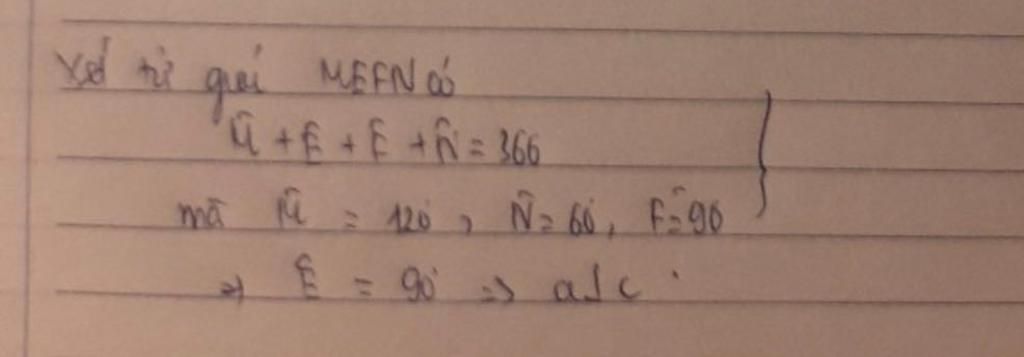 Xét tứ giác MEFN có
M̂ + Ê + F̂ + N̂ = 360
mà M̂ = 120°, N̂ = 60°, F̂ = 90
=> Ê = 90° => a⊥c